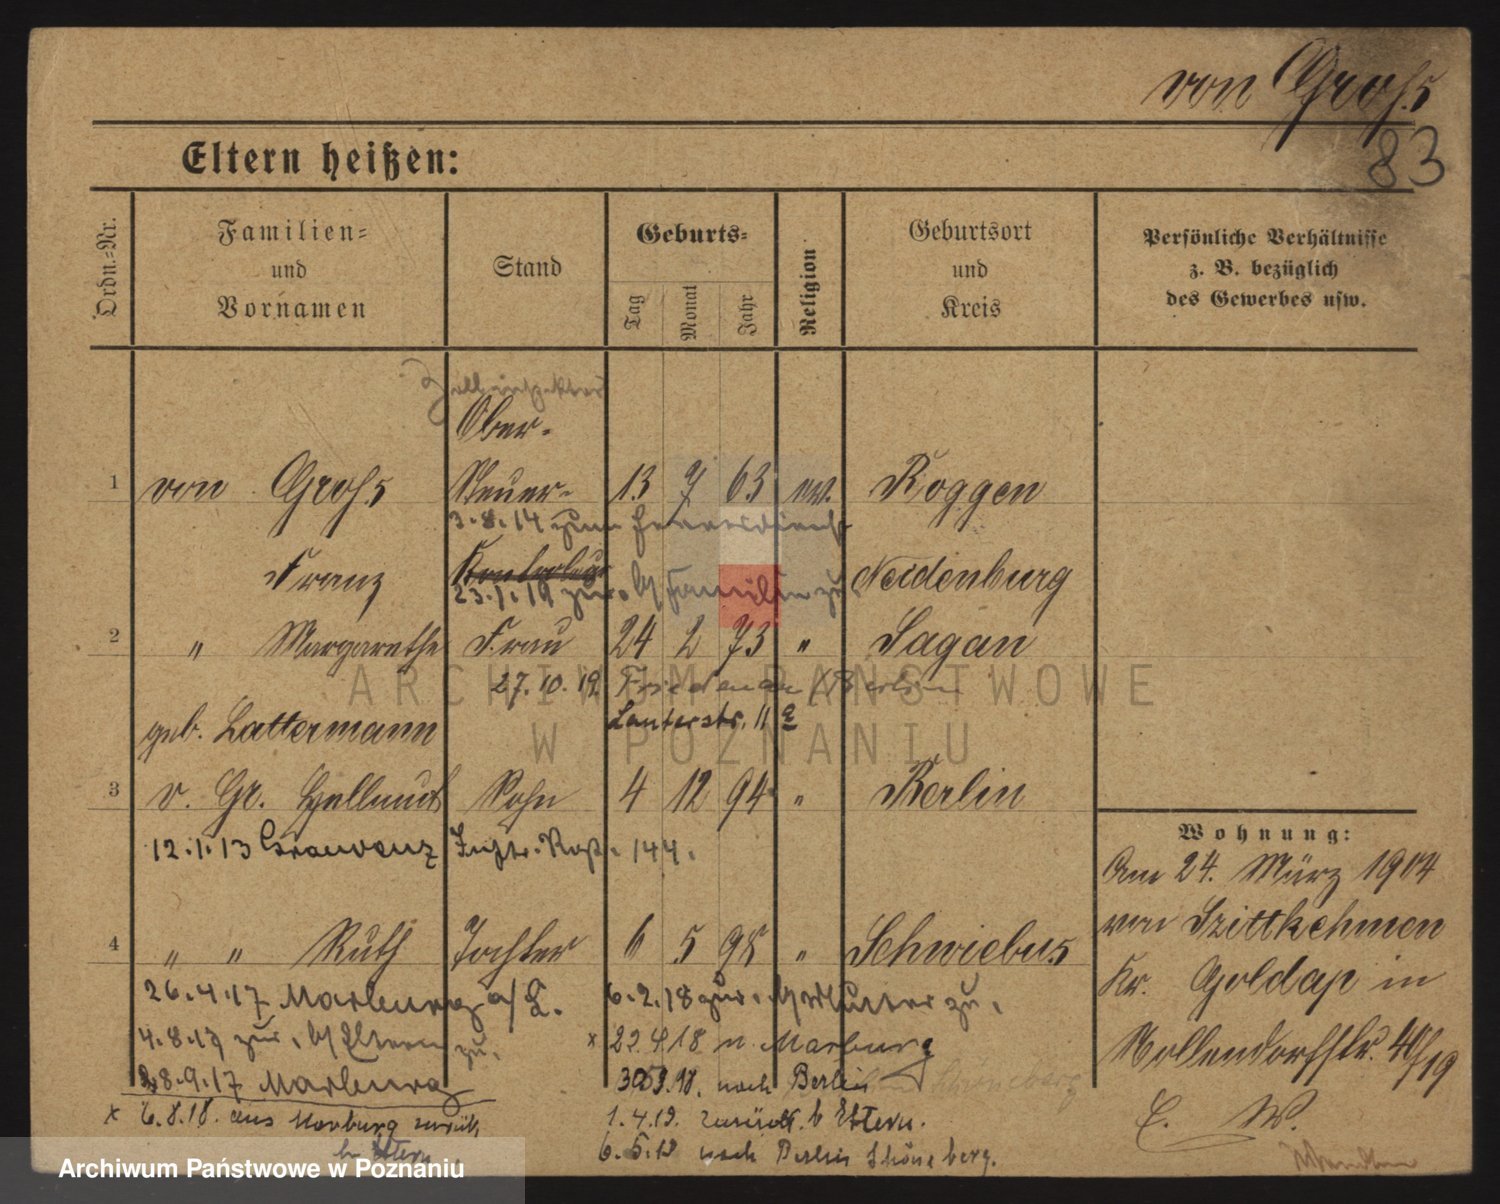 von Grohs
83
Eltern heißen:
Ordn.-Nr.
Familien-
und
Vornamen
Stand
Geburts-
Tag
Monat
Jahr
Religion
Geburtsort
und
Kreis
Persönliche Verhältnisse
z. B. bezüglich
des Gewerbes usw.
Zollinspektor
Ober-
1 von Grohs Steuer- 13 7 63 ev. Roggen
3.8.14 zum Heeresdienst
Franz Kontroleur Neidenburg
23.1.19 zur. b/ Familie zu
2 " Margarethe Frau 24 2 73 " Sagan
27.10.19 Friedenau / Berlin
Lauterstr. 11
geb. Lattermann
3 v. Gr. Hellmut Sohn 4 12 94 " Berlin
12.1.13 Graudenz Inftr. Rgt. 144.
4 " " Ruth Tochter 6 5 98 " Schwiebus
26.4.17 Marburg a/L.
6.2.18 zur. b/ Mutter zu.
4.8.17 zur. b/ Eltern zu.
x 22.4.18 n. Marburg
28.9.17 Marburg
30.9.18. nach Berlin Schöneberg
x 6.8.18. aus Marburg zurück
b Eltern
1.4.19. zurück. b Eltern.
6.5.19 nach Berlin Schöneberg.
Wohnung:
Am 24. März 1904
von Szittkehmen
Kr. Goldap in
Mollendorfstr. 40/19
E. W.
ARCHIWUM PAŃSTWOWE
W POZNANIU
Archiwum Państwowe w Poznaniu